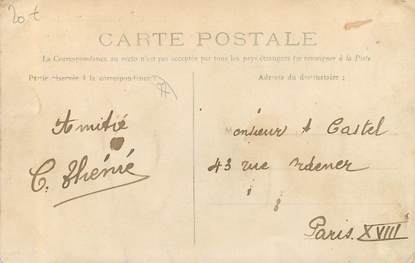 20t
CARTE POSTALE
La Correspondance au recto n'est pas acceptée par tous les pays étrangers (se renseigner à la Poste
Partie réservée à la correspondance
Adresse du destinataire :
Amitié
C. Thénié
Monsieur A Castel
43 rue
Paris. XVIII